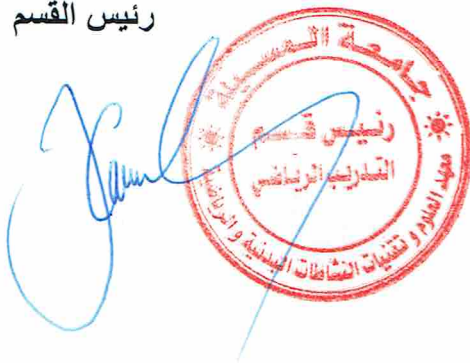 رئيس القسم
جامعة المسيلة
رئيس قسم
التدريب الرياضي
معهد العلوم و تقنيات النشاطات البدنية و الرياضية